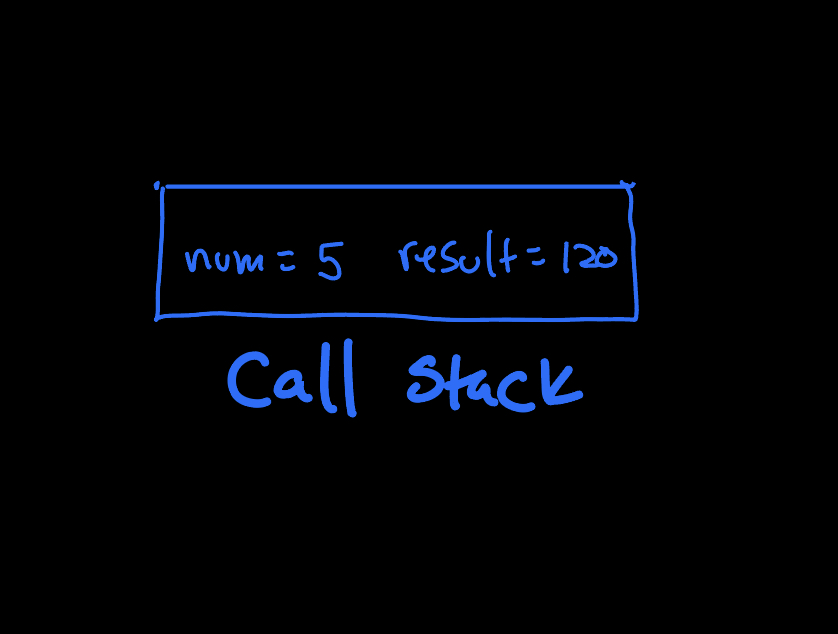 num = 5 result = 120
Call Stack